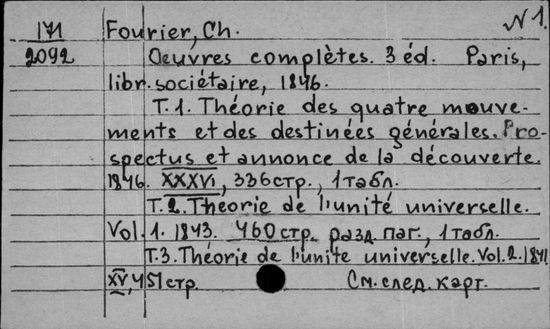 171 Fourier, Ch. N 1.
2092 Oeuvres complètes. 3 éd. Paris,
libr. sociétaire, 1846.
T. 1. Théorie des quatre mouve-
ments et des destinées générales. Pro-
spectus et annonce de la découverte.
1846. XXXVI, 336 стр., 1 табл.
T. 2. Theorie de l'unité universelle.
Vol. 1. 1843. 460 стр. разд. паг., 1 табл.
T. 3. Théorie de l'unite universelle. Vol. 2. 1841
XV, 451 стр. См. след. карт.